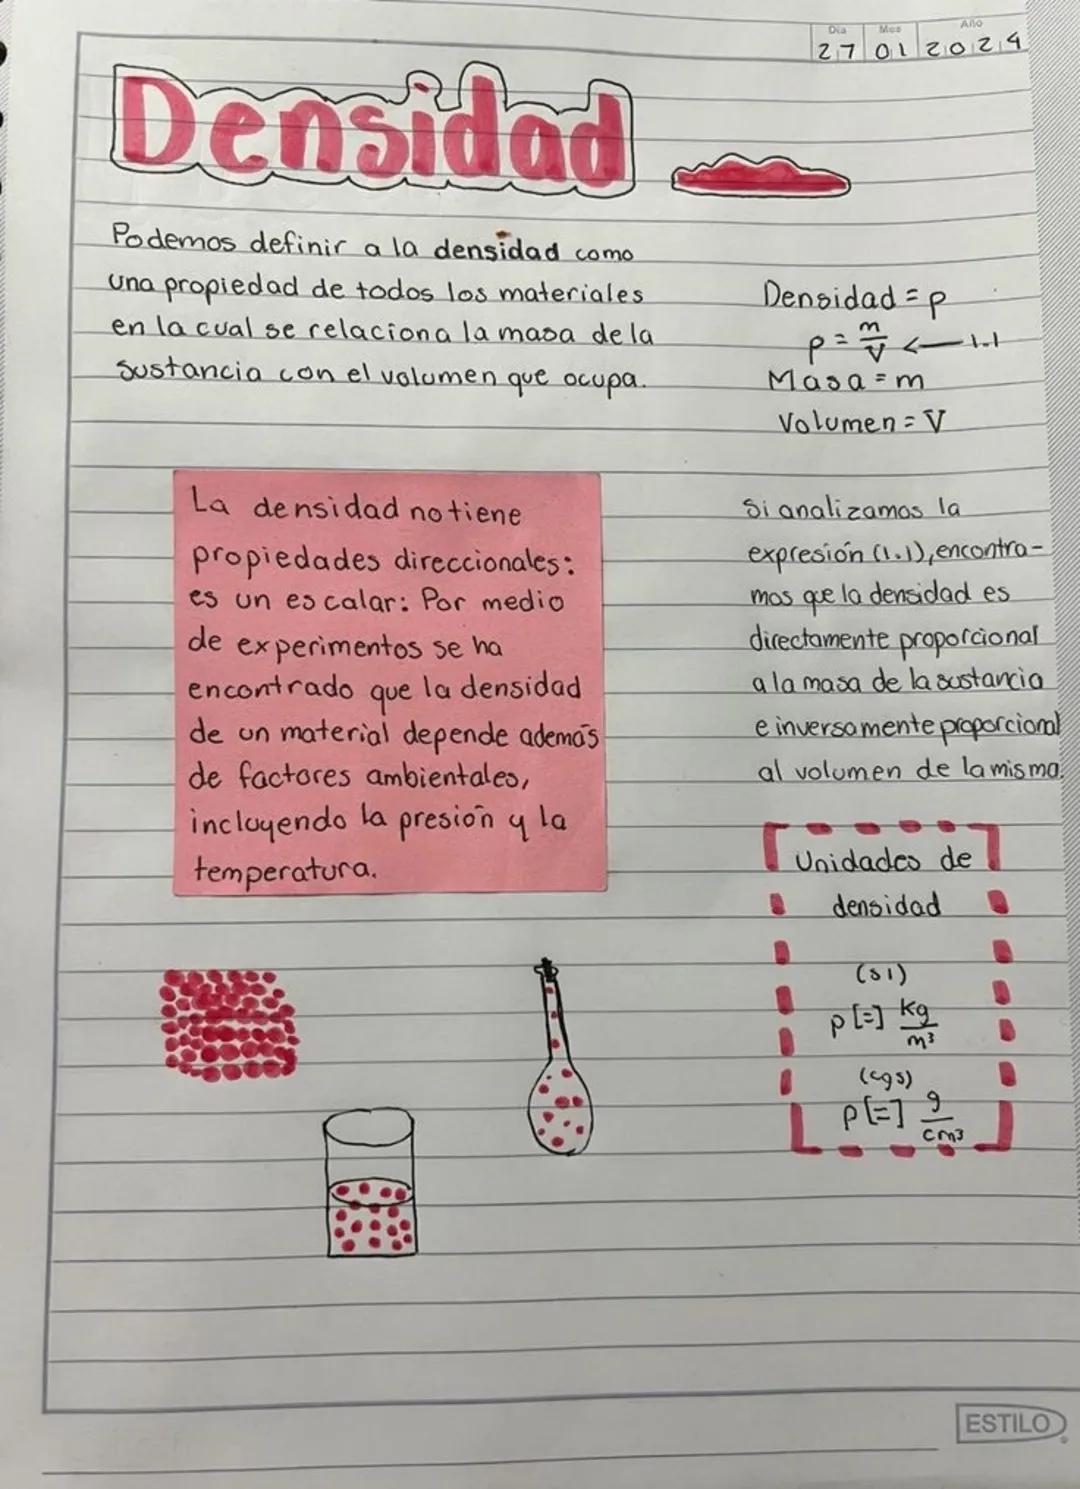 Día Mes Año
27 01 2024
Densidad
Podemos definir a la densidad como
una propiedad de todos los materiales
en la cual se relaciona la masa de la
sustancia con el volumen que ocupa.
Densidad = p
p = m/V ← 1.1
Masa = m
Volumen = V
La densidad no tiene
propiedades direccionales:
es un escalar: Por medio
de experimentos se ha
encontrado que la densidad
de un material depende además
de factores ambientales,
incluyendo la presión y la
temperatura.
Si analizamos la
expresión (1.1), encontra-
mos que la densidad es
directamente proporcional
a la masa de la sustancia
e inversamente proporcional
al volumen de la misma.
Unidades de
densidad
(SI)
p [=] kg/m³
(cgs)
p [=] g/cm³
ESTILO